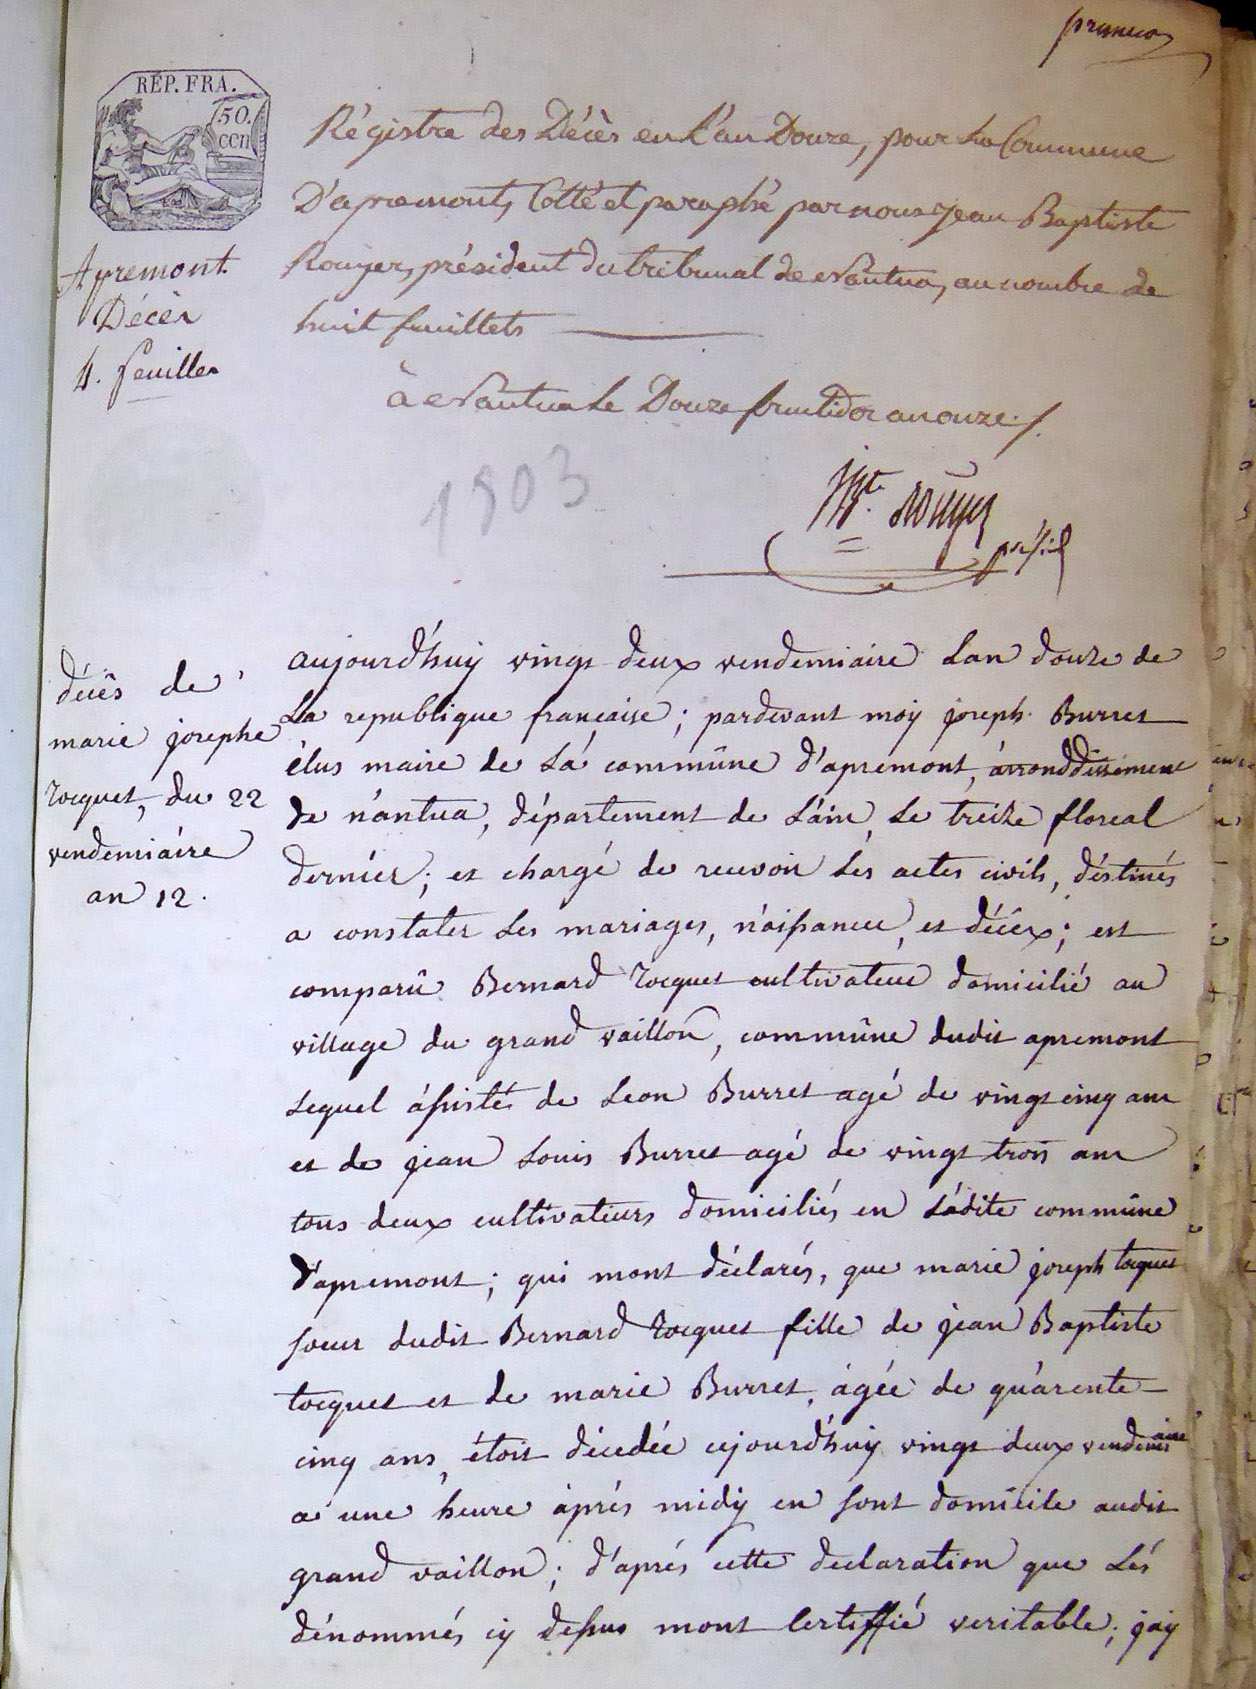 premier
RÉP. FRA.
50.
CEN
Régistre des Décès en L'an Douze, pour La Commune
D'apremont, Cotté et paraphé par nous Jean Baptiste
Rouyer, président du tribunal de Nantua, au nombre de
huit feuillets
Apremont.
Décès
4. feuilles
à Nantua Le Douze fructidor an onze ./.
1803
Bte. Rouyer
présid
décês de
marie josephe
tocquet, du 22
vendemiáire
an 12.
aujourd'huy vingt deux vendemiaire Lan douze de
La republique française ; pardevant moy joseph Burret
élus maire de Lá commûne d'apremont, árronddissement
de nántua, département de Láin, Le treize floreal
derniér ; et chargé de recevoir Lés actes civils, déstinés
a constater Les mariages, náissance, et décêx ; est
comparû Bernard tocquet cultivateur domicilié au
village du grand vaillon, commûne dudit apremont
Lequel ássisté de Leon Burret agé de vingt cinq ans
et de jean Louis Burret agé de vingt trois ans
tous deux cultivateurs domiciliés en Ládite commûne
d'apremont ; qui mont déclarés, que marie joseph tocquet
soeur dudit Bernard tocquet fille de jean Baptiste
tocquet et de marie Burret, ágée de quárente
cinq ans, étoit décedée cejourd'huy vingt deux vendemiaire
a une heure áprés midy en sont domicile audit
grand vaillon ; d'aprés cette declaration que Lés
dénommés cy dessus mont Certiffié veritable ; jay